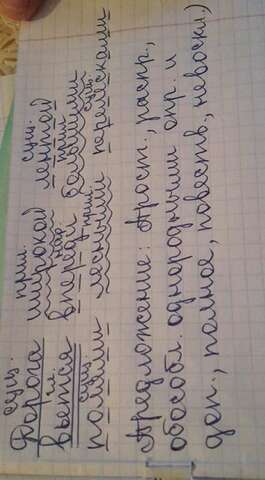 сущ. прил. сущ.
Дорога широкой лентой
гл. нар. прил.
вьется впереди большими
сущ. прил. сущ.
полями лесными перелесками
Предложение: Прост., распр.,
обособл. однородными опр. и
доп., полное, повеств., невоскл.)